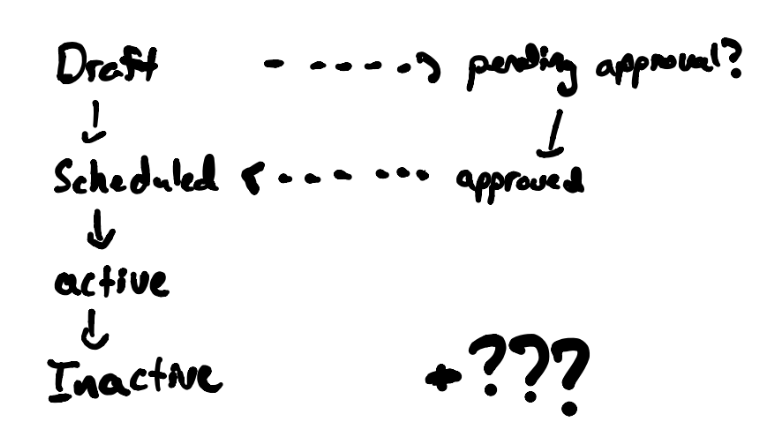 Draft pending approval?
Scheduled approved
active
Inactive + ???